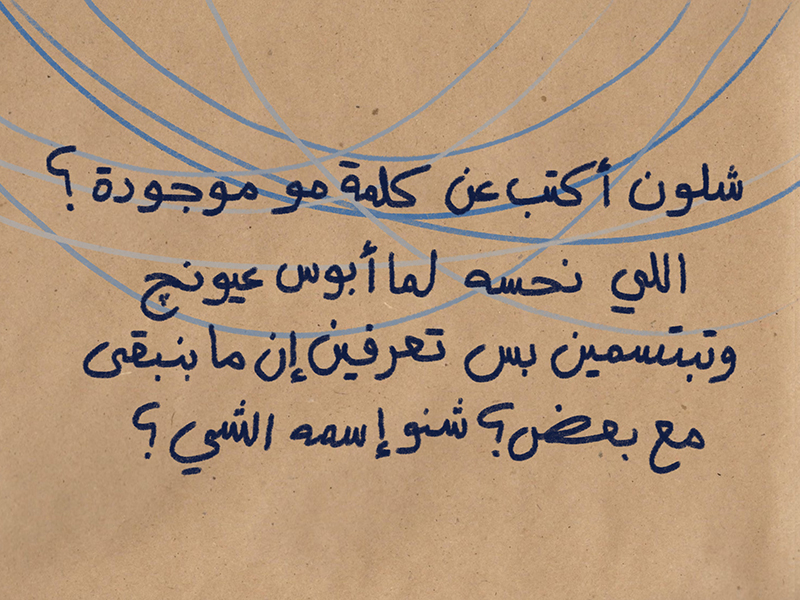 شلون أكتب عن كلمة مو موجودة ؟
اللي نحسه لما أبوس عيونچ
وتبتسمين بس تعرفين إن ما بنبقى
مع بعض ؟ شنو إسمه الشي ؟